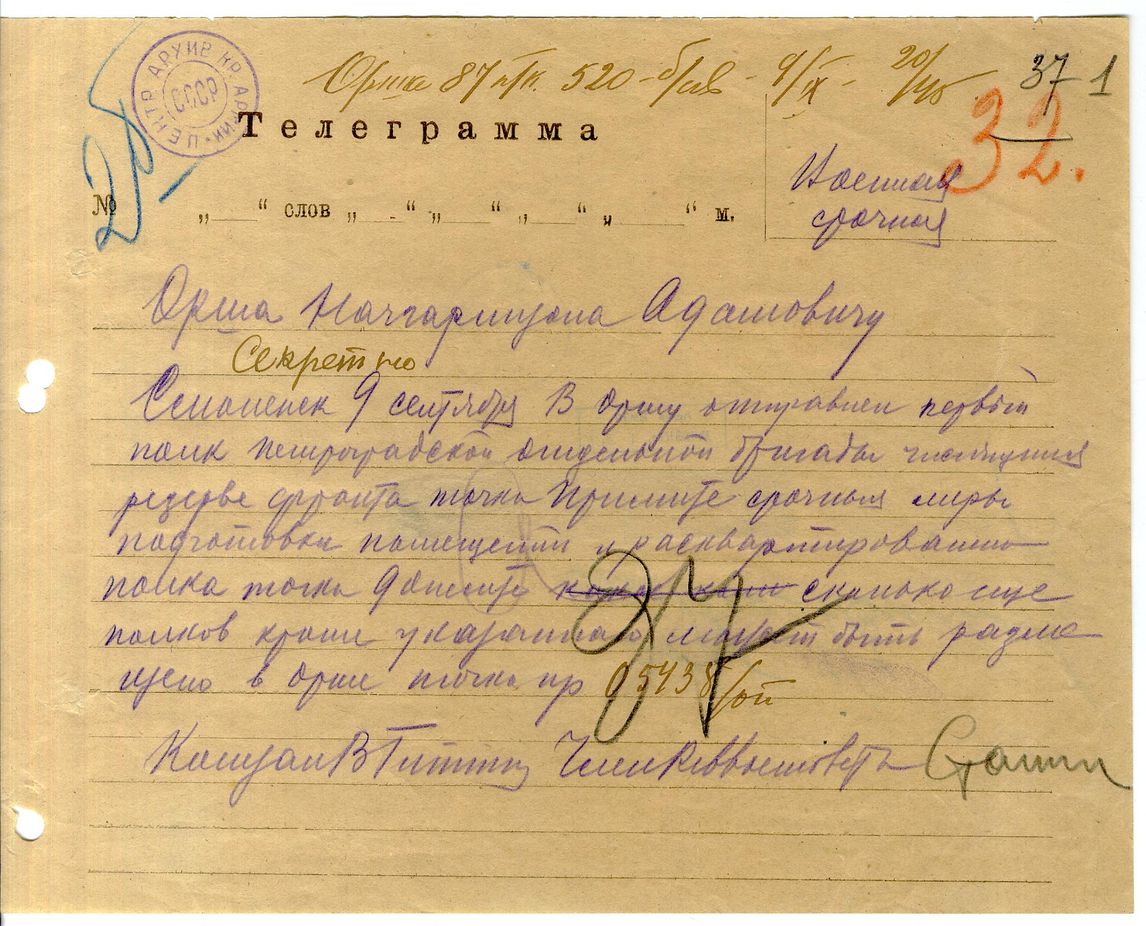 ЦЕНТР АРХИВ КР. АРМИИ
СССР
Орша 87 520 9/IX 20/45
37 1
32.
Телеграмма
№ „ “ слов „ “ „ “ „ “ „ “ м.
Военная
срочная
Орша Начгарнизона Адамовичу
Секретно
Смоленск 9 сентября В Оршу отправлен первый
полк петроградской отдельной бригады
резерве фронта точка Примите срочныя меры
подготовки помещений и расквартированию
полка точка Донесите сколько еще
полков кроме указаннаго могут быть разме
щено в Орше точка нр 05438/оп
КомзапВ Гиттис Член Реввоенсовета Сталин